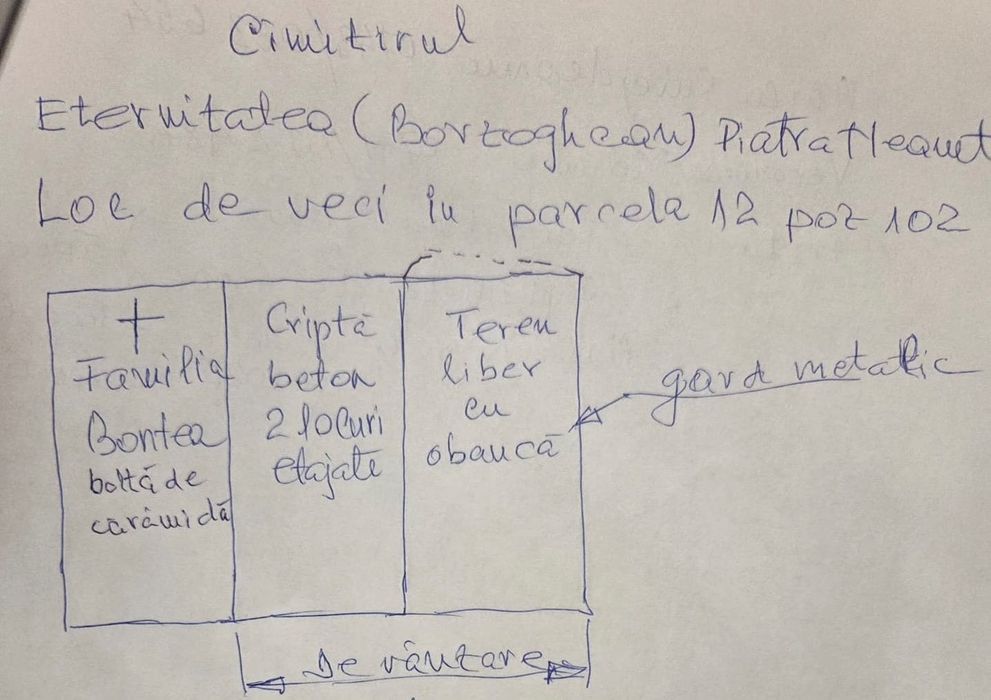 Cimitirul
Eternitatea (Borzoghean) Piatra Neamț
Loc de veci în parcela 12 poz 102
+
Familia
Bontea
boltă de
cărămidă
Criptă
beton
2 locuri
etajate
Teren
liber
cu
o bancă
gard metalic
De vânzare